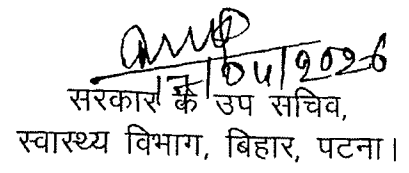 17/04/2026
सरकार के उप सचिव,
स्वास्थ्य विभाग, बिहार, पटना।